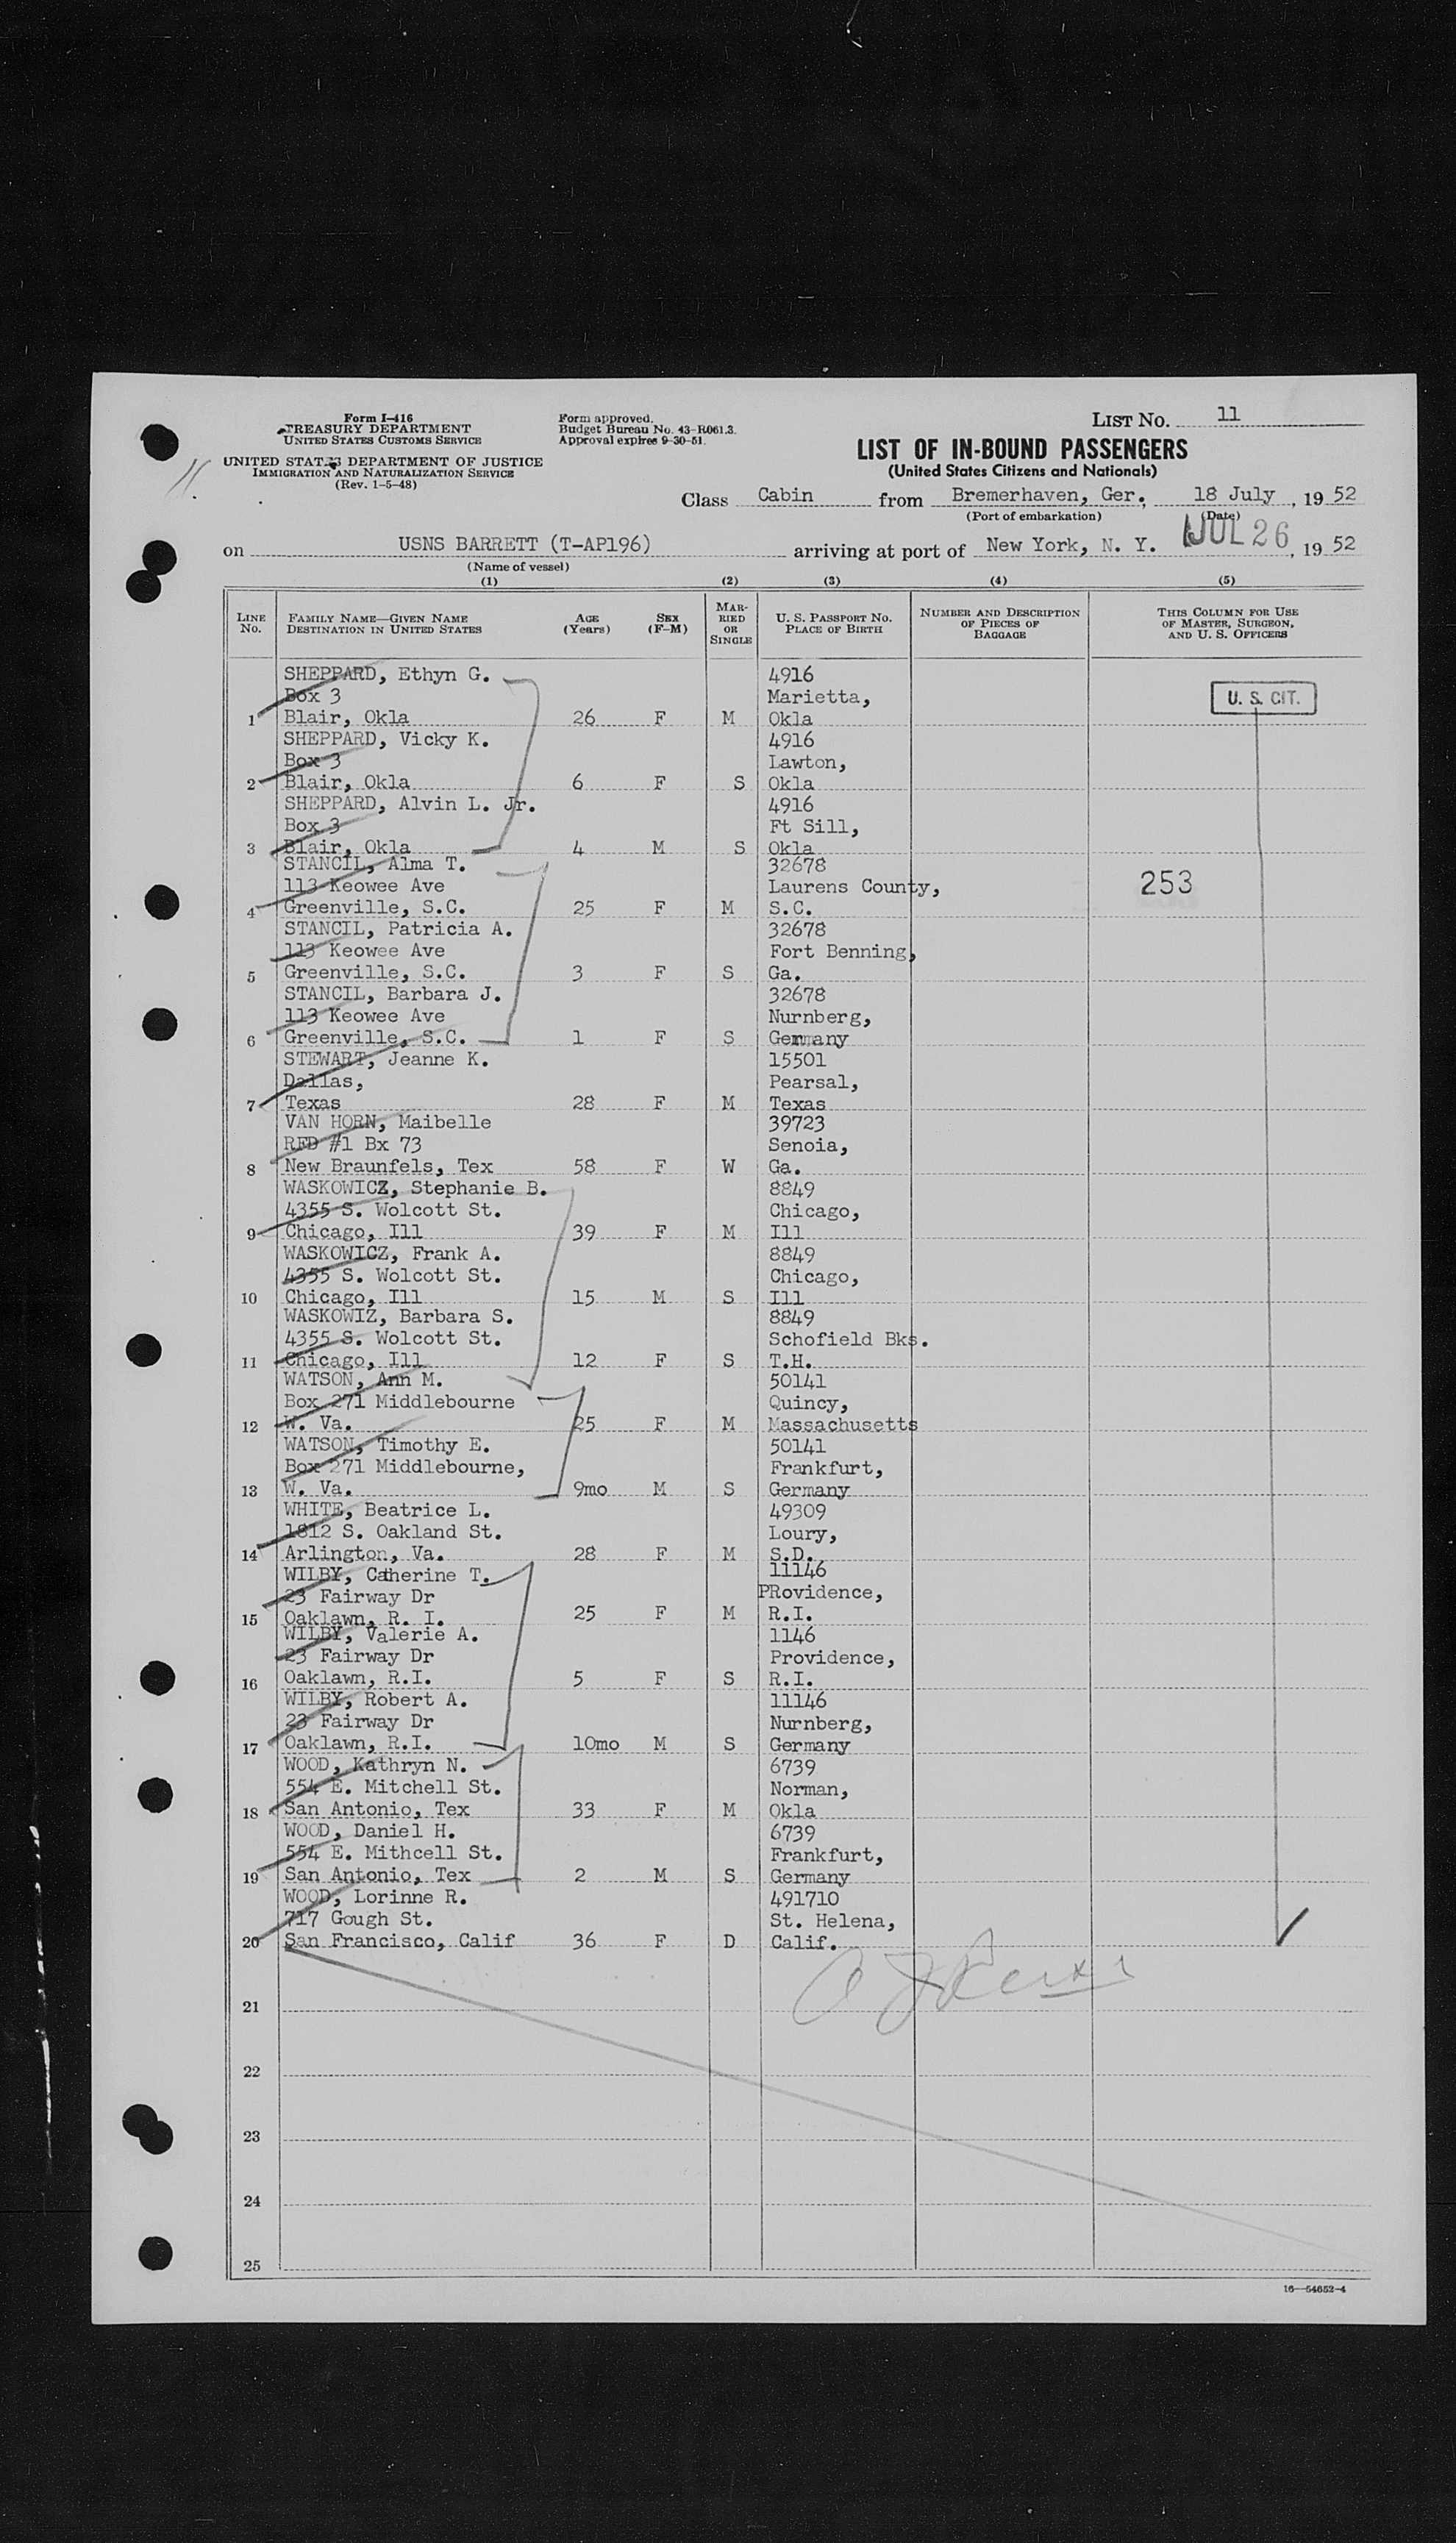 Form I-416
TREASURY DEPARTMENT
UNITED STATES CUSTOMS SERVICE
UNITED STATES DEPARTMENT OF JUSTICE
IMMIGRATION AND NATURALIZATION SERVICE
(Rev. 1-5-48)
Form approved.
Budget Bureau No. 43-R061.3.
Approval expires 9-30-51.
LIST No. 11
LIST OF IN-BOUND PASSENGERS
(United States Citizens and Nationals)
11
Class Cabin from Bremerhaven, Ger., 18 July, 19 52
(Port of embarkation) (Date)
on USNS BARRETT (T-AP196) arriving at port of New York, N. Y. JUL 26, 19 52
(Name of vessel)
(1) (2) (3) (4) (5)
LINE No. FAMILY NAME—GIVEN NAME DESTINATION IN UNITED STATES AGE (Years) SEX (F-M) MARRIED OR SINGLE U. S. PASSPORT No. PLACE OF BIRTH NUMBER AND DESCRIPTION OF PIECES OF BAGGAGE THIS COLUMN FOR USE OF MASTER, SURGEON, AND U. S. OFFICERS
SHEPPARD, Ethyn G. 4916
Box 3 Marietta, U. S. CIT.
1 Blair, Okla 26 F M Okla
SHEPPARD, Vicky K. 4916
Box 3 Lawton,
2 Blair, Okla 6 F S Okla
SHEPPARD, Alvin L. Jr. 4916
Box 3 Ft Sill,
3 Blair, Okla 4 M S Okla
STANCIL, Alma T. 32678
113 Keowee Ave Laurens County, 253
4 Greenville, S.C. 25 F M S.C.
STANCIL, Patricia A. 32678
113 Keowee Ave Fort Benning,
5 Greenville, S.C. 3 F S Ga.
STANCIL, Barbara J. 32678
113 Keowee Ave Nurnberg,
6 Greenville, S.C. 1 F S Germany
STEWART, Jeanne K. 15501
Dallas, Pearsal,
7 Texas 28 F M Texas
VAN HORN, Maibelle 39723
RFD #1 Bx 73 Senoia,
8 New Braunfels, Tex 58 F W Ga.
WASKOWICZ, Stephanie B. 8849
4355 S. Wolcott St. Chicago,
9 Chicago, Ill 39 F M Ill
WASKOWICZ, Frank A. 8849
4355 S. Wolcott St. Chicago,
10 Chicago, Ill 15 M S Ill
WASKOWIZ, Barbara S. 8849
4355 S. Wolcott St. Schofield Bks.
11 Chicago, Ill 12 F S T.H.
WATSON, Ann M. 50141
Box 271 Middlebourne Quincy,
12 W. Va. 25 F M Massachusetts
WATSON, Timothy E. 50141
Box 271 Middlebourne, Frankfurt,
13 W. Va. 9mo M S Germany
WHITE, Beatrice L. 49309
1812 S. Oakland St. Loury,
14 Arlington, Va. 28 F M S.D.
WILBY, Catherine T. 11146
23 Fairway Dr PRovidence,
15 Oaklawn, R. I. 25 F M R.I.
WILBY, Valerie A. 1146
23 Fairway Dr Providence,
16 Oaklawn, R.I. 5 F S R.I.
WILBY, Robert A. 11146
23 Fairway Dr Nurnberg,
17 Oaklawn, R.I. 10mo M S Germany
WOOD, Kathryn N. 6739
554 E. Mitchell St. Norman,
18 San Antonio, Tex 33 F M Okla
WOOD, Daniel H. 6739
554 E. Mithcell St. Frankfurt,
19 San Antonio, Tex 2 M S Germany
WOOD, Lorinne R. 491710
717 Gough St. St. Helena,
20 San Francisco, Calif 36 F D Calif.
21
22
23
24
25
16—54652-4